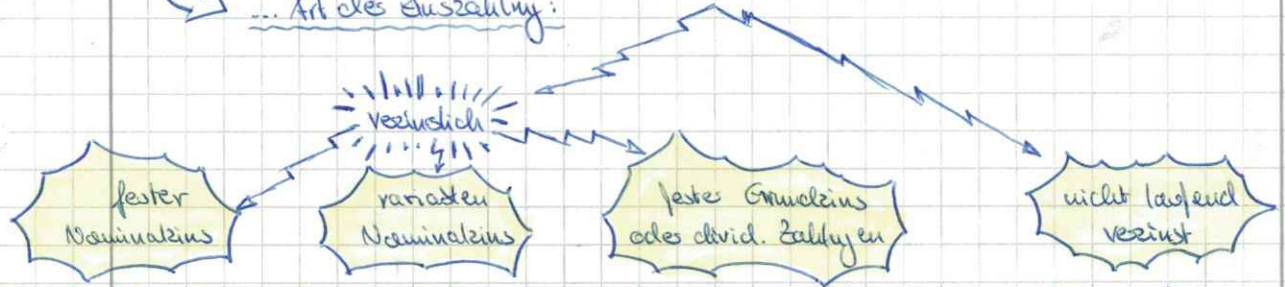 ... Art der Auszahlung:
verzinslich
fester
Nominalzins
variablen
Nominalzins
fester Grundzins
oder divid. Zahlungen
nicht laufend
verzinst